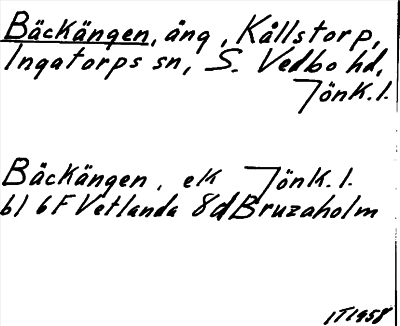 Bäckängen, äng, Kållstorp,
Ingatorps sn, S. Vedbo hd,
Jönk. l.
Bäckängen, ek Jönk. l.
bl 6F Vetlanda 8d Bruzaholm
IT1958